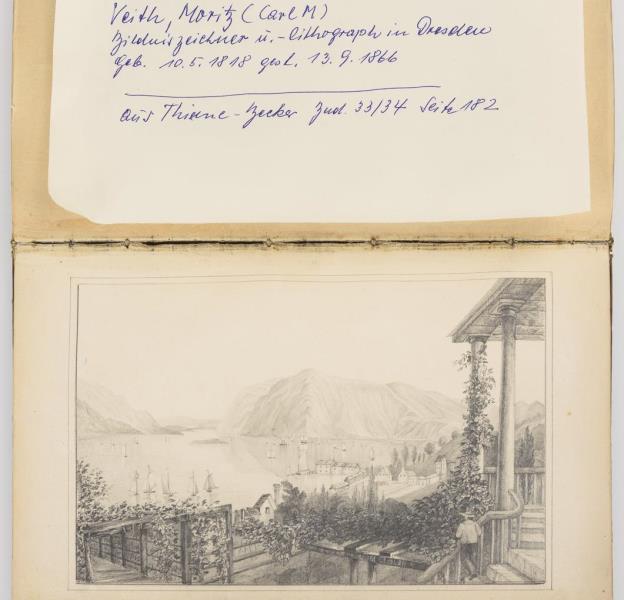 Veith, Moritz (Carl M)
Bildniszeichner u. - Lithograph in Dresden
Geb. 10.5.1818 gest. 13.9.1866
aus Thieme-Becker Bnd. 33/34 Seite 182